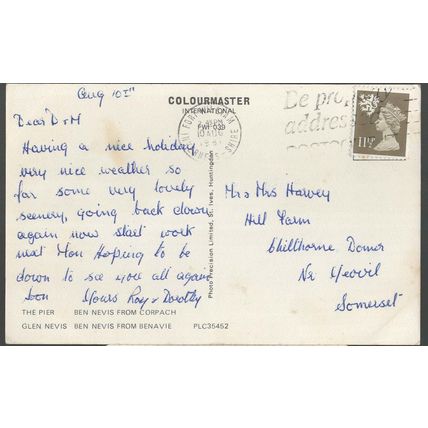 Aug 10th
COLOURMASTER
INTERNATIONAL
PWI 039
10 AUG
Be prop
address
11½P
Dear D & M
Having a nice holiday
very nice weather so
far some very lovely
scenery, going back down
again now start work
next Mon Hoping to be
down to see you all again
soon Yours Roy & Dorothy
Mr & Mrs Harvey
Hill Farm
Chilthorne Domer
Nr Yeovil
Somerset
Photo Precision Limited, St. Ives, Huntingdon
THE PIER BEN NEVIS FROM CORPACH
GLEN NEVIS BEN NEVIS FROM BENAVIE PLC35452